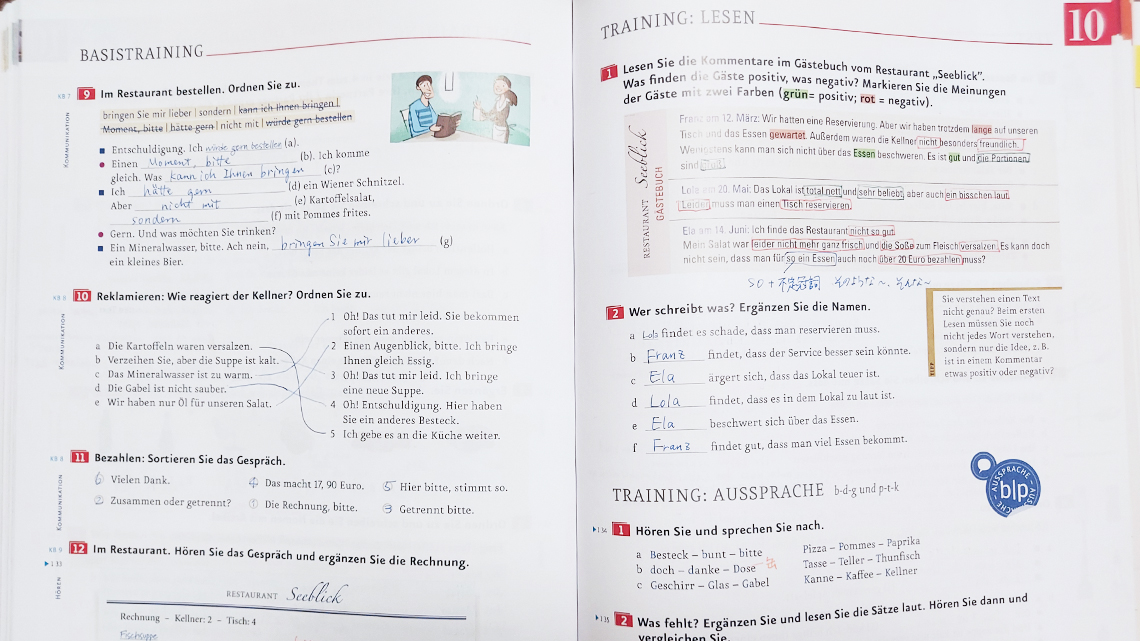 BASISTRAINING
KB 7
KOMMUNIKATION
9 Im Restaurant bestellen. Ordnen Sie zu.
bringen Sie mir lieber | sondern | kann ich Ihnen bringen |
Moment, bitte | hätte gern | nicht mit | würde gern bestellen
■ Entschuldigung. Ich würde gern bestellen (a).
● Einen Moment, bitte (b). Ich komme
gleich. Was kann ich Ihnen bringen (c)?
■ Ich hätte gern (d) ein Wiener Schnitzel.
Aber nicht mit (e) Kartoffelsalat,
sondern (f) mit Pommes frites.
● Gern. Und was möchten Sie trinken?
■ Ein Mineralwasser, bitte. Ach nein, bringen Sie mir lieber (g)
ein kleines Bier.
KB 8
KOMMUNIKATION
10 Reklamieren: Wie reagiert der Kellner? Ordnen Sie zu.
a Die Kartoffeln waren versalzen.
b Verzeihen Sie, aber die Suppe ist kalt.
c Das Mineralwasser ist zu warm.
d Die Gabel ist nicht sauber.
e Wir haben nur Öl für unseren Salat.
1 Oh! Das tut mir leid. Sie bekommen
sofort ein anderes.
2 Einen Augenblick, bitte. Ich bringe
Ihnen gleich Essig.
3 Oh! Das tut mir leid. Ich bringe
eine neue Suppe.
4 Oh! Entschuldigung. Hier haben
Sie ein anderes Besteck.
5 Ich gebe es an die Küche weiter.
KB 8
KOMMUNIKATION
11 Bezahlen: Sortieren Sie das Gespräch.
6 Vielen Dank. 4 Das macht 17, 90 Euro. 5 Hier bitte, stimmt so.
2 Zusammen oder getrennt? 1 Die Rechnung, bitte. 3 Getrennt bitte.
KB 9
▶ 1 33
HÖREN
12 Im Restaurant. Hören Sie das Gespräch und ergänzen Sie die Rechnung.
RESTAURANT Seeblick
Rechnung – Kellner: 2 – Tisch: 4
Fischsuppe
TRAINING: LESEN
10
1 Lesen Sie die Kommentare im Gästebuch vom Restaurant „Seeblick".
Was finden die Gäste positiv, was negativ? Markieren Sie die Meinungen
der Gäste mit zwei Farben (grün= positiv; rot = negativ).
RESTAURANT Seeblick
GÄSTEBUCH
Franz am 12. März: Wir hatten eine Reservierung. Aber wir haben trotzdem lange auf unseren
Tisch und das Essen gewartet. Außerdem waren die Kellner nicht besonders freundlich.
Wenigstens kann man sich nicht über das Essen beschweren. Es ist gut und die Portionen
sind groß.
Lola am 20. Mai: Das Lokal ist total nett und sehr beliebt, aber auch ein bisschen laut.
Leider muss man einen Tisch reservieren.
Ela am 14. Juni: Ich finde das Restaurant nicht so gut.
Mein Salat war leider nicht mehr ganz frisch und die Soße zum Fleisch versalzen. Es kann doch
nicht sein, dass man für so ein Essen auch noch über 20 Euro bezahlen muss?
so + 不定冠詞 そのような~、そんな~
2 Wer schreibt was? Ergänzen Sie die Namen.
a Lola findet es schade, dass man reservieren muss.
b Franz findet, dass der Service besser sein könnte.
c Ela ärgert sich, dass das Lokal teuer ist.
d Lola findet, dass es in dem Lokal zu laut ist.
e Ela beschwert sich über das Essen.
f Franz findet gut, dass man viel Essen bekommt.
TIPP
Sie verstehen einen Text
nicht genau? Beim ersten
Lesen müssen Sie noch
nicht jedes Wort verstehen,
sondern nur die Idee, z. B.
ist in einem Kommentar
etwas positiv oder negativ?
TRAINING: AUSSPRACHE b-d-g und p-t-k
AUSSPRACHE – AUSSPRACHE
blp
▶ 1 34
1 Hören Sie und sprechen Sie nach.
a Besteck – bunt – bitte
b doch – danke – Dose
c Geschirr – Glas – Gabel
Pizza – Pommes – Paprika
Tasse – Teller – Thunfisch
Kanne – Kaffee – Kellner
▶ 1 35
2 Was fehlt? Ergänzen Sie und lesen Sie die Sätze laut. Hören Sie dann und
vergleichen Sie.